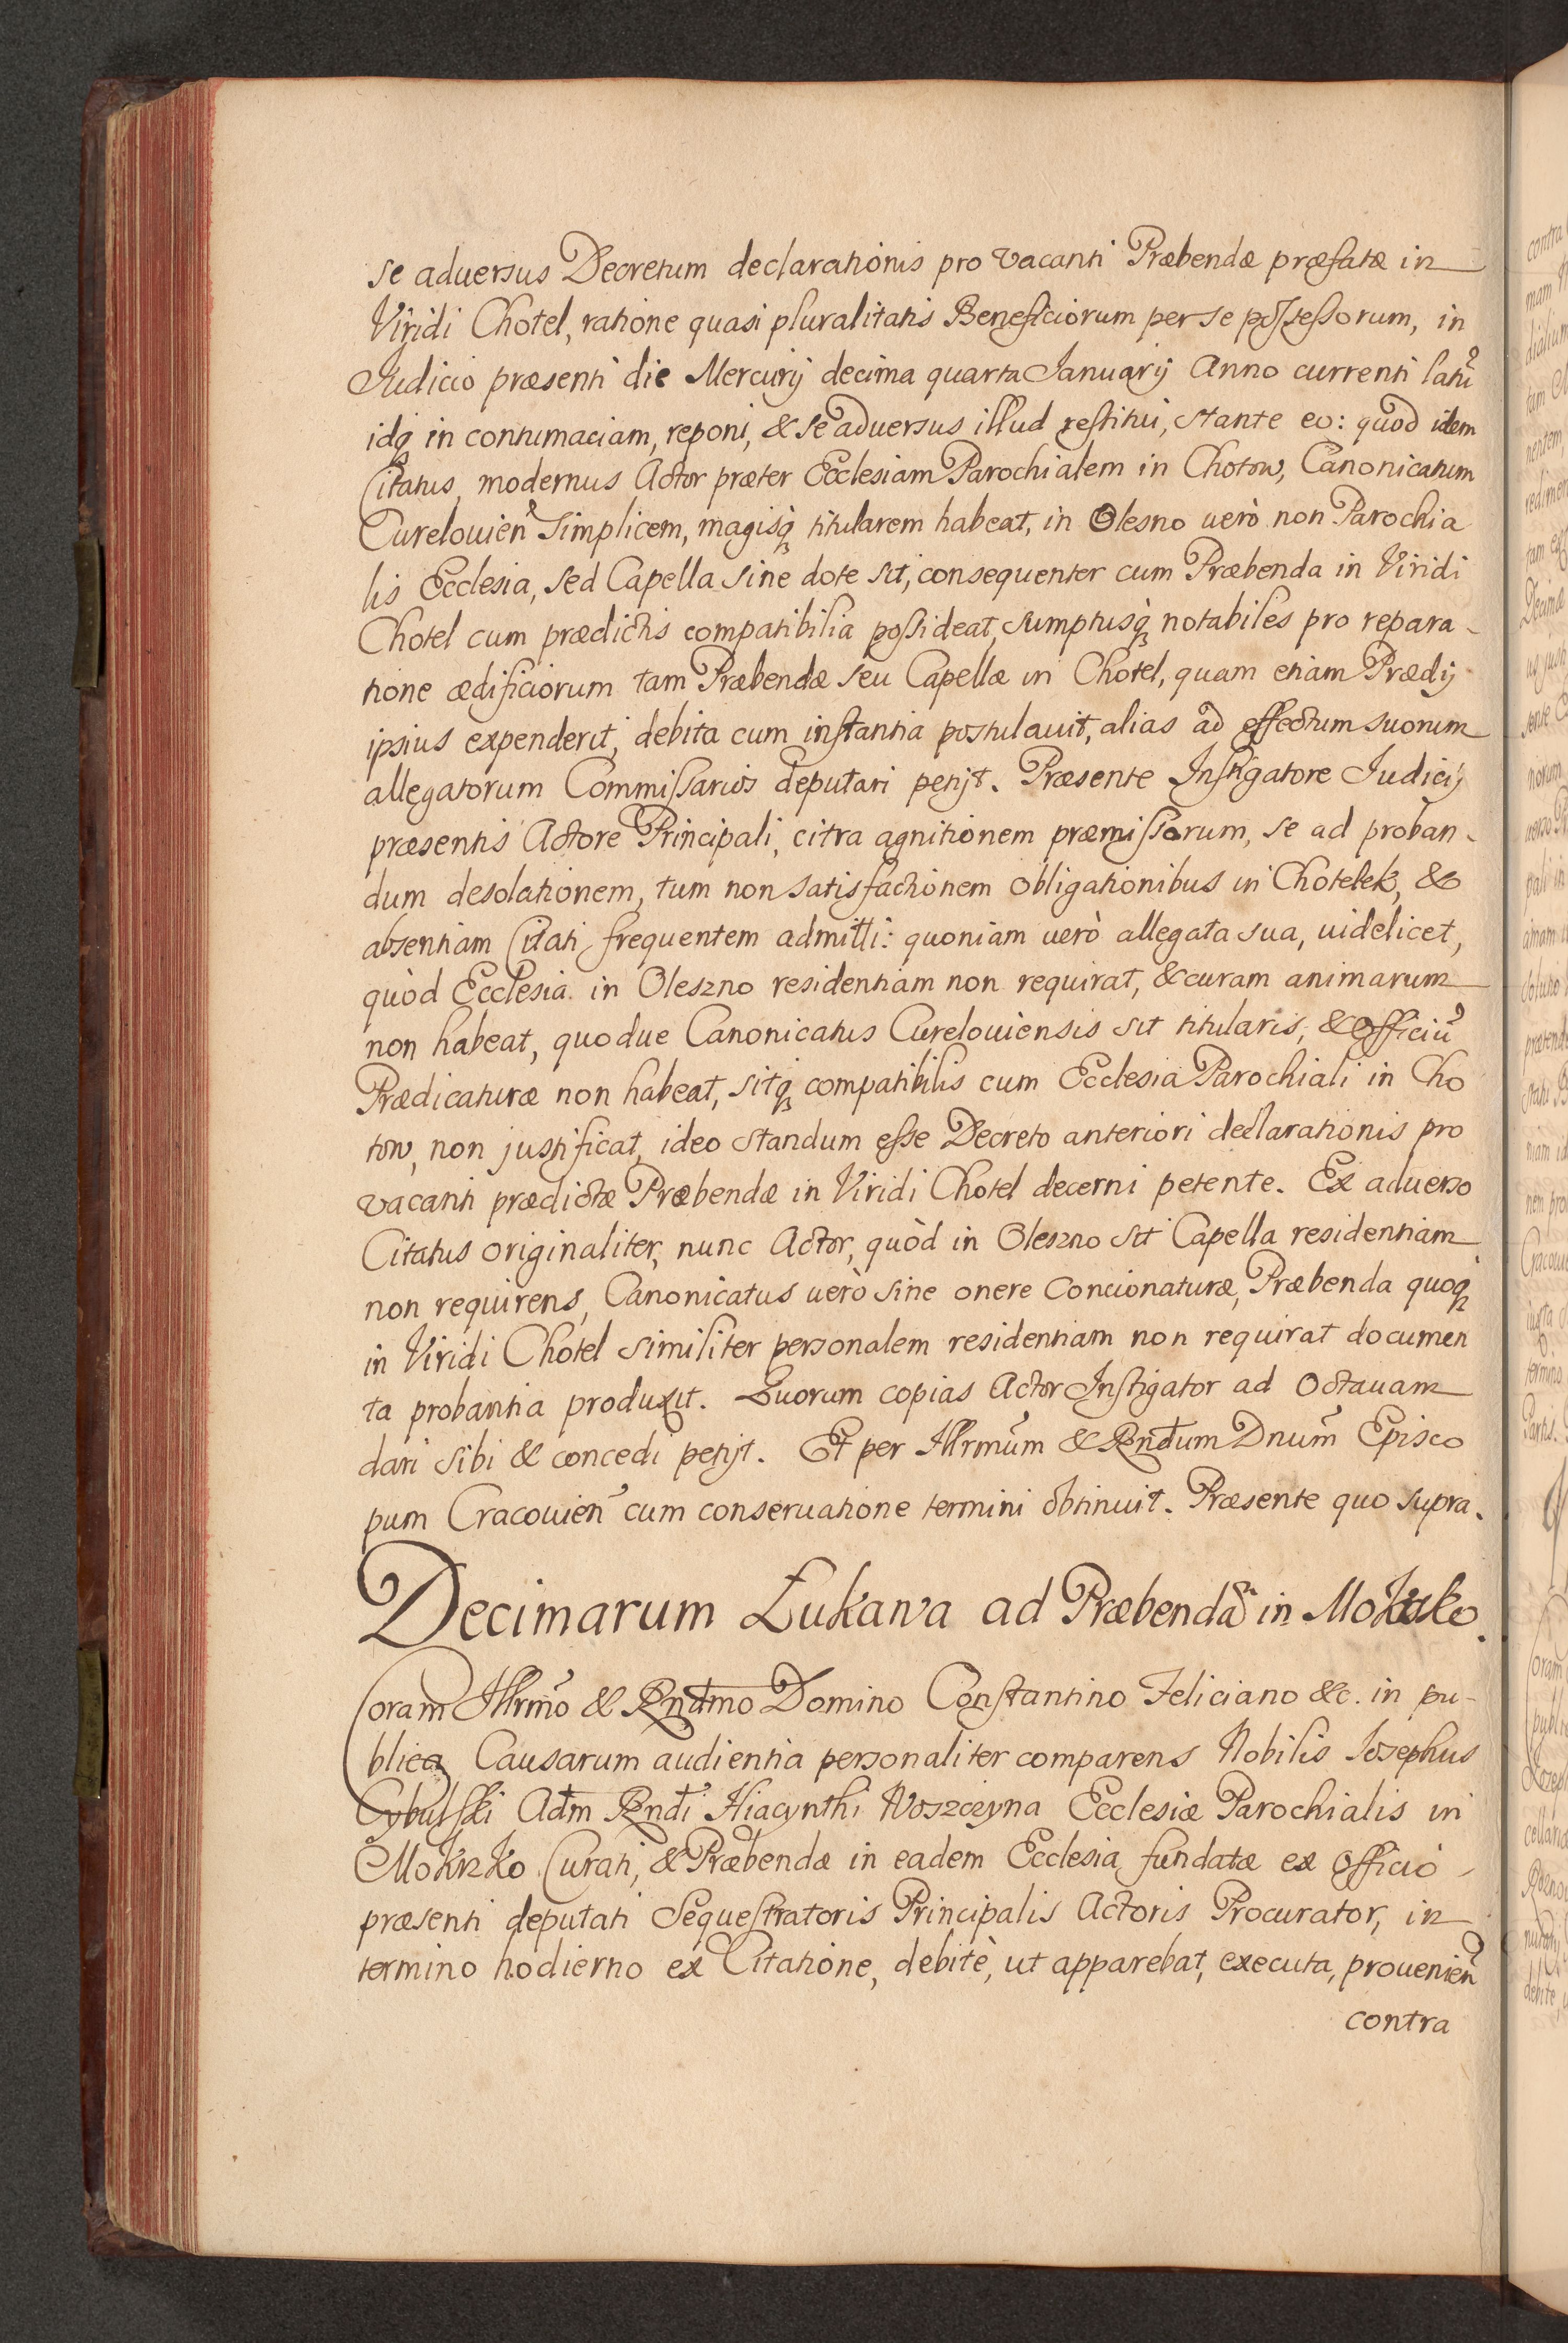 se aduersus Decretum declarationis pro vacanti Præbendæ præfatæ in
Viridi Chotel, ratione quasi pluralitatis Beneficiorum per se possessorum, in
Iudicio præsenti die Mercurij decima quarta Ianuarij Anno currenti latũ
idq̃ in contumaciam, reponi, & se aduersus illud restitui, stante eo: quod idem
Citatus, modernus Actor præter Ecclesiam Parochialem in Chotow, Canonicatum
Curelouien̄ simplicem, magisq̃ titularem habeat, in Olesno uerò non Parochia
lis Ecclesia, sed Capella sine dote sit, consequenter cum Præbenda in Viridi
Chotel cum prædictis compatibilia possideat, sumptusq̃ notabiles pro repara-
tione ædificiorum tam Præbendæ seu Capellæ in Chotel, quam etiam Prædij
ipsius expenderit, debita cum instantia postulauit, alias ad effectum suorum
allegatorum Commissarios deputari petijt. Præsente Instigatore Iudicij
præsentis Actore Principali, citra agnitionem præmissorum, se ad proban-
dum desolationem, tum non satisfactionem obligationibus in Chotelek, &
absentiam Citati frequentem admitti: quoniam uerò allegata sua, uidelicet,
quòd Ecclesia in Oleszno residentiam non requirat, & curam animarum
non habeat, quodue Canonicatus Curelouiensis sit titularis, & Officiũ
Prædicaturæ non habeat, sitq̃ compatibilis cum Ecclesia Parochiali in Cho
tow, non justificat, ideo standum esse Decreto anteriori declarationis pro
vacanti prædictæ Præbendæ in Viridi Chotel decerni petente. Ex aduerso
Citatus originaliter, nunc Actor, quòd in Oleszno sit Capella residentiam
non requirens, Canonicatus uerò sine onere Concionaturæ, Præbenda quoq̃
in Viridi Chotel similiter personalem residentiam non requirat documen
ta probantia produxit. Quorum copias Actor Instigator ad Octauam
dari sibi & concedi petijt. Et per Illrmũm & Rndum Dnum̃ Episco
pum Cracouien̄ cum conseruatione termini obtinuit. Præsente quo supra.
Decimarum Łukawa ad Præbendã in Mokrsko.
Coram Illrmõ & Rndmo Domino Constantino Feliciano &c. in pu-
blica Causarum audientia personaliter comparens Nobilis Iosephus
Cybulski Adm Rndi Hiacynthi Woszczyna Ecclesiæ Parochialis in
Mokrzko Curati, & Præbendæ in eadem Ecclesia fundatæ ex Officio
præsenti deputati Sequestratoris Principalis Actoris Procurator, in
termino hodierno ex Citatione, debitè, ut apparebat, executa, prouenien̄
contra